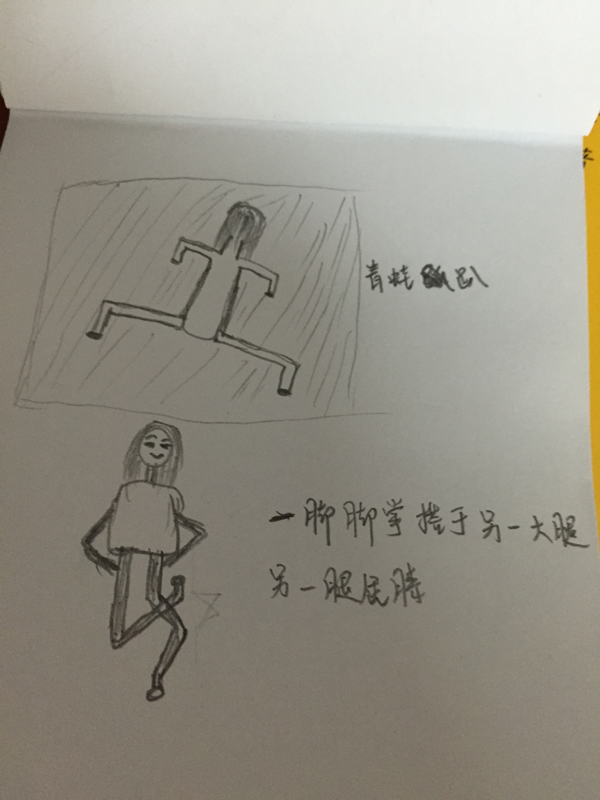 青蛙趴
一脚脚掌搭于另一大腿
另一腿屈膝